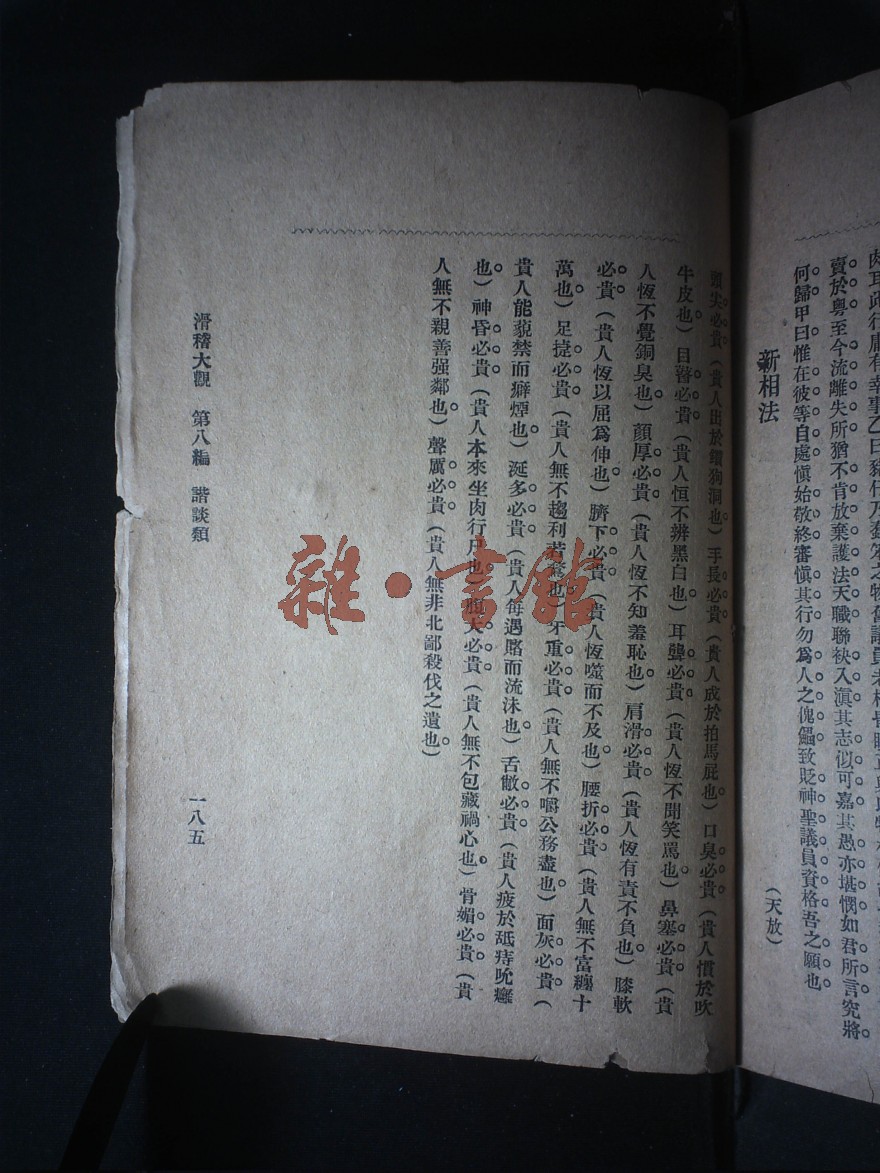 賣於粵至今流離失所猶不肯放棄護法天職聯袂入滇其志似可嘉其愚亦堪憫如君所言究將
何歸甲曰惟在彼等自處愼始敬終審愼其行勿爲人之傀儡致貶神聖議員資格吾之願也
(天放)
新相法
頭尖必貴(貴人出於鑽狗洞也)手長必貴(貴人成於拍馬屁也)口臭必貴(貴人慣於吹
牛皮也)目瞀必貴(貴人恒不辨黑白也)耳聾必貴(貴人恆不聞笑罵也)鼻塞必貴(貴
人恆不覺銅臭也)顏厚必貴(貴人恆不知羞恥也)肩滑必貴(貴人恆有責不負也)膝軟
必貴(貴人恆以屈爲伸也)臍下必貴(貴人恆噬而不及也)腰折必貴(貴人無不富纏十
萬也)足㨗必貴(貴人無不趨利若鶩也)牙重必貴(貴人無不嚼公務盡也)面灰必貴(
貴人能藐禁而癖煙也)涎多必貴(貴人每遇賂而流沫也)舌敝必貴(貴人疲於舐痔吮癰
也)神昏必貴(貴人本來坐肉行尸也)膽大必貴(貴人無不包藏禍心也)骨媚必貴(貴
人無不親善强鄰也)聲厲必貴(貴人無非北鄙殺伐之遺也)
滑稽大觀 第八編 諧談類
一八五
雜·書館